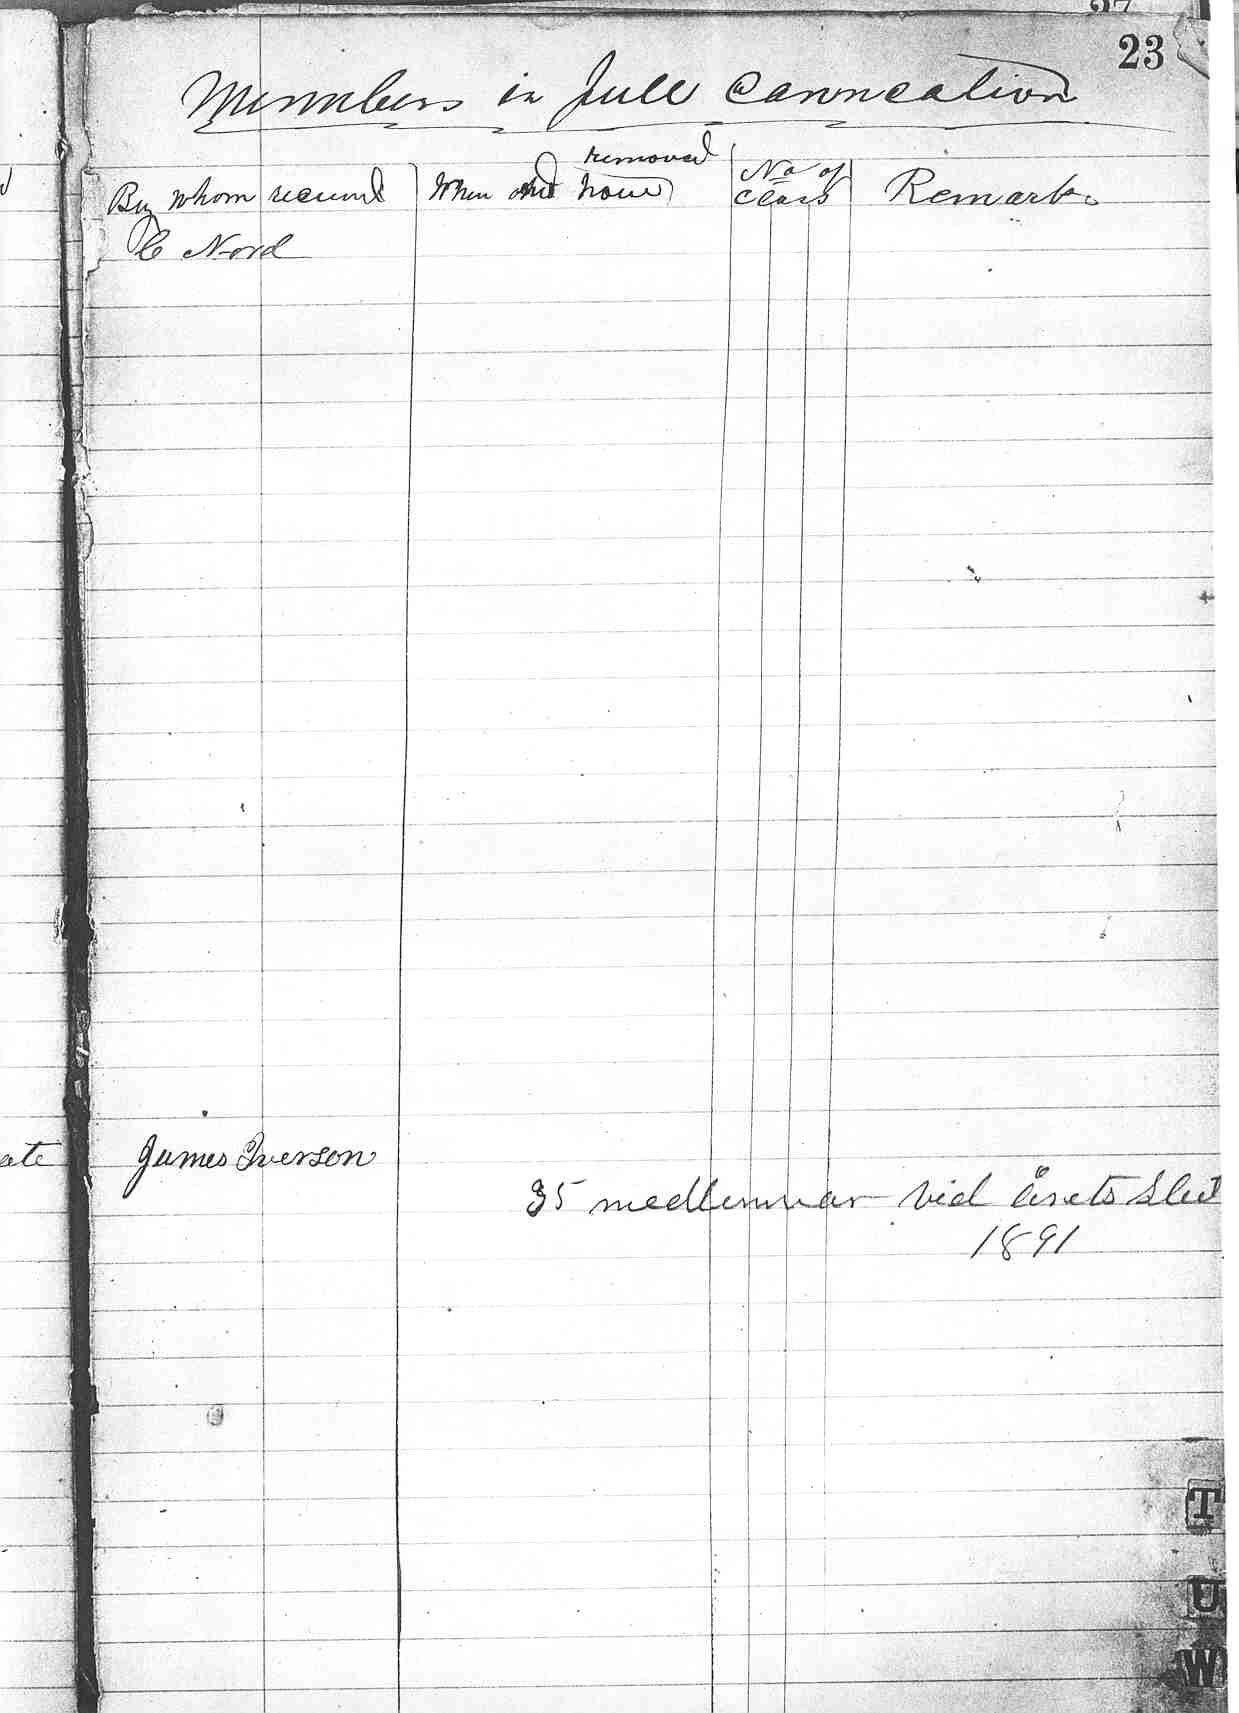 23
Members in full Connection
By whom received
When and how removed
No of Class
Remarks
C Nord
ate
James Iverson
35 medlemmar vid årets slut
1891
T
U
W